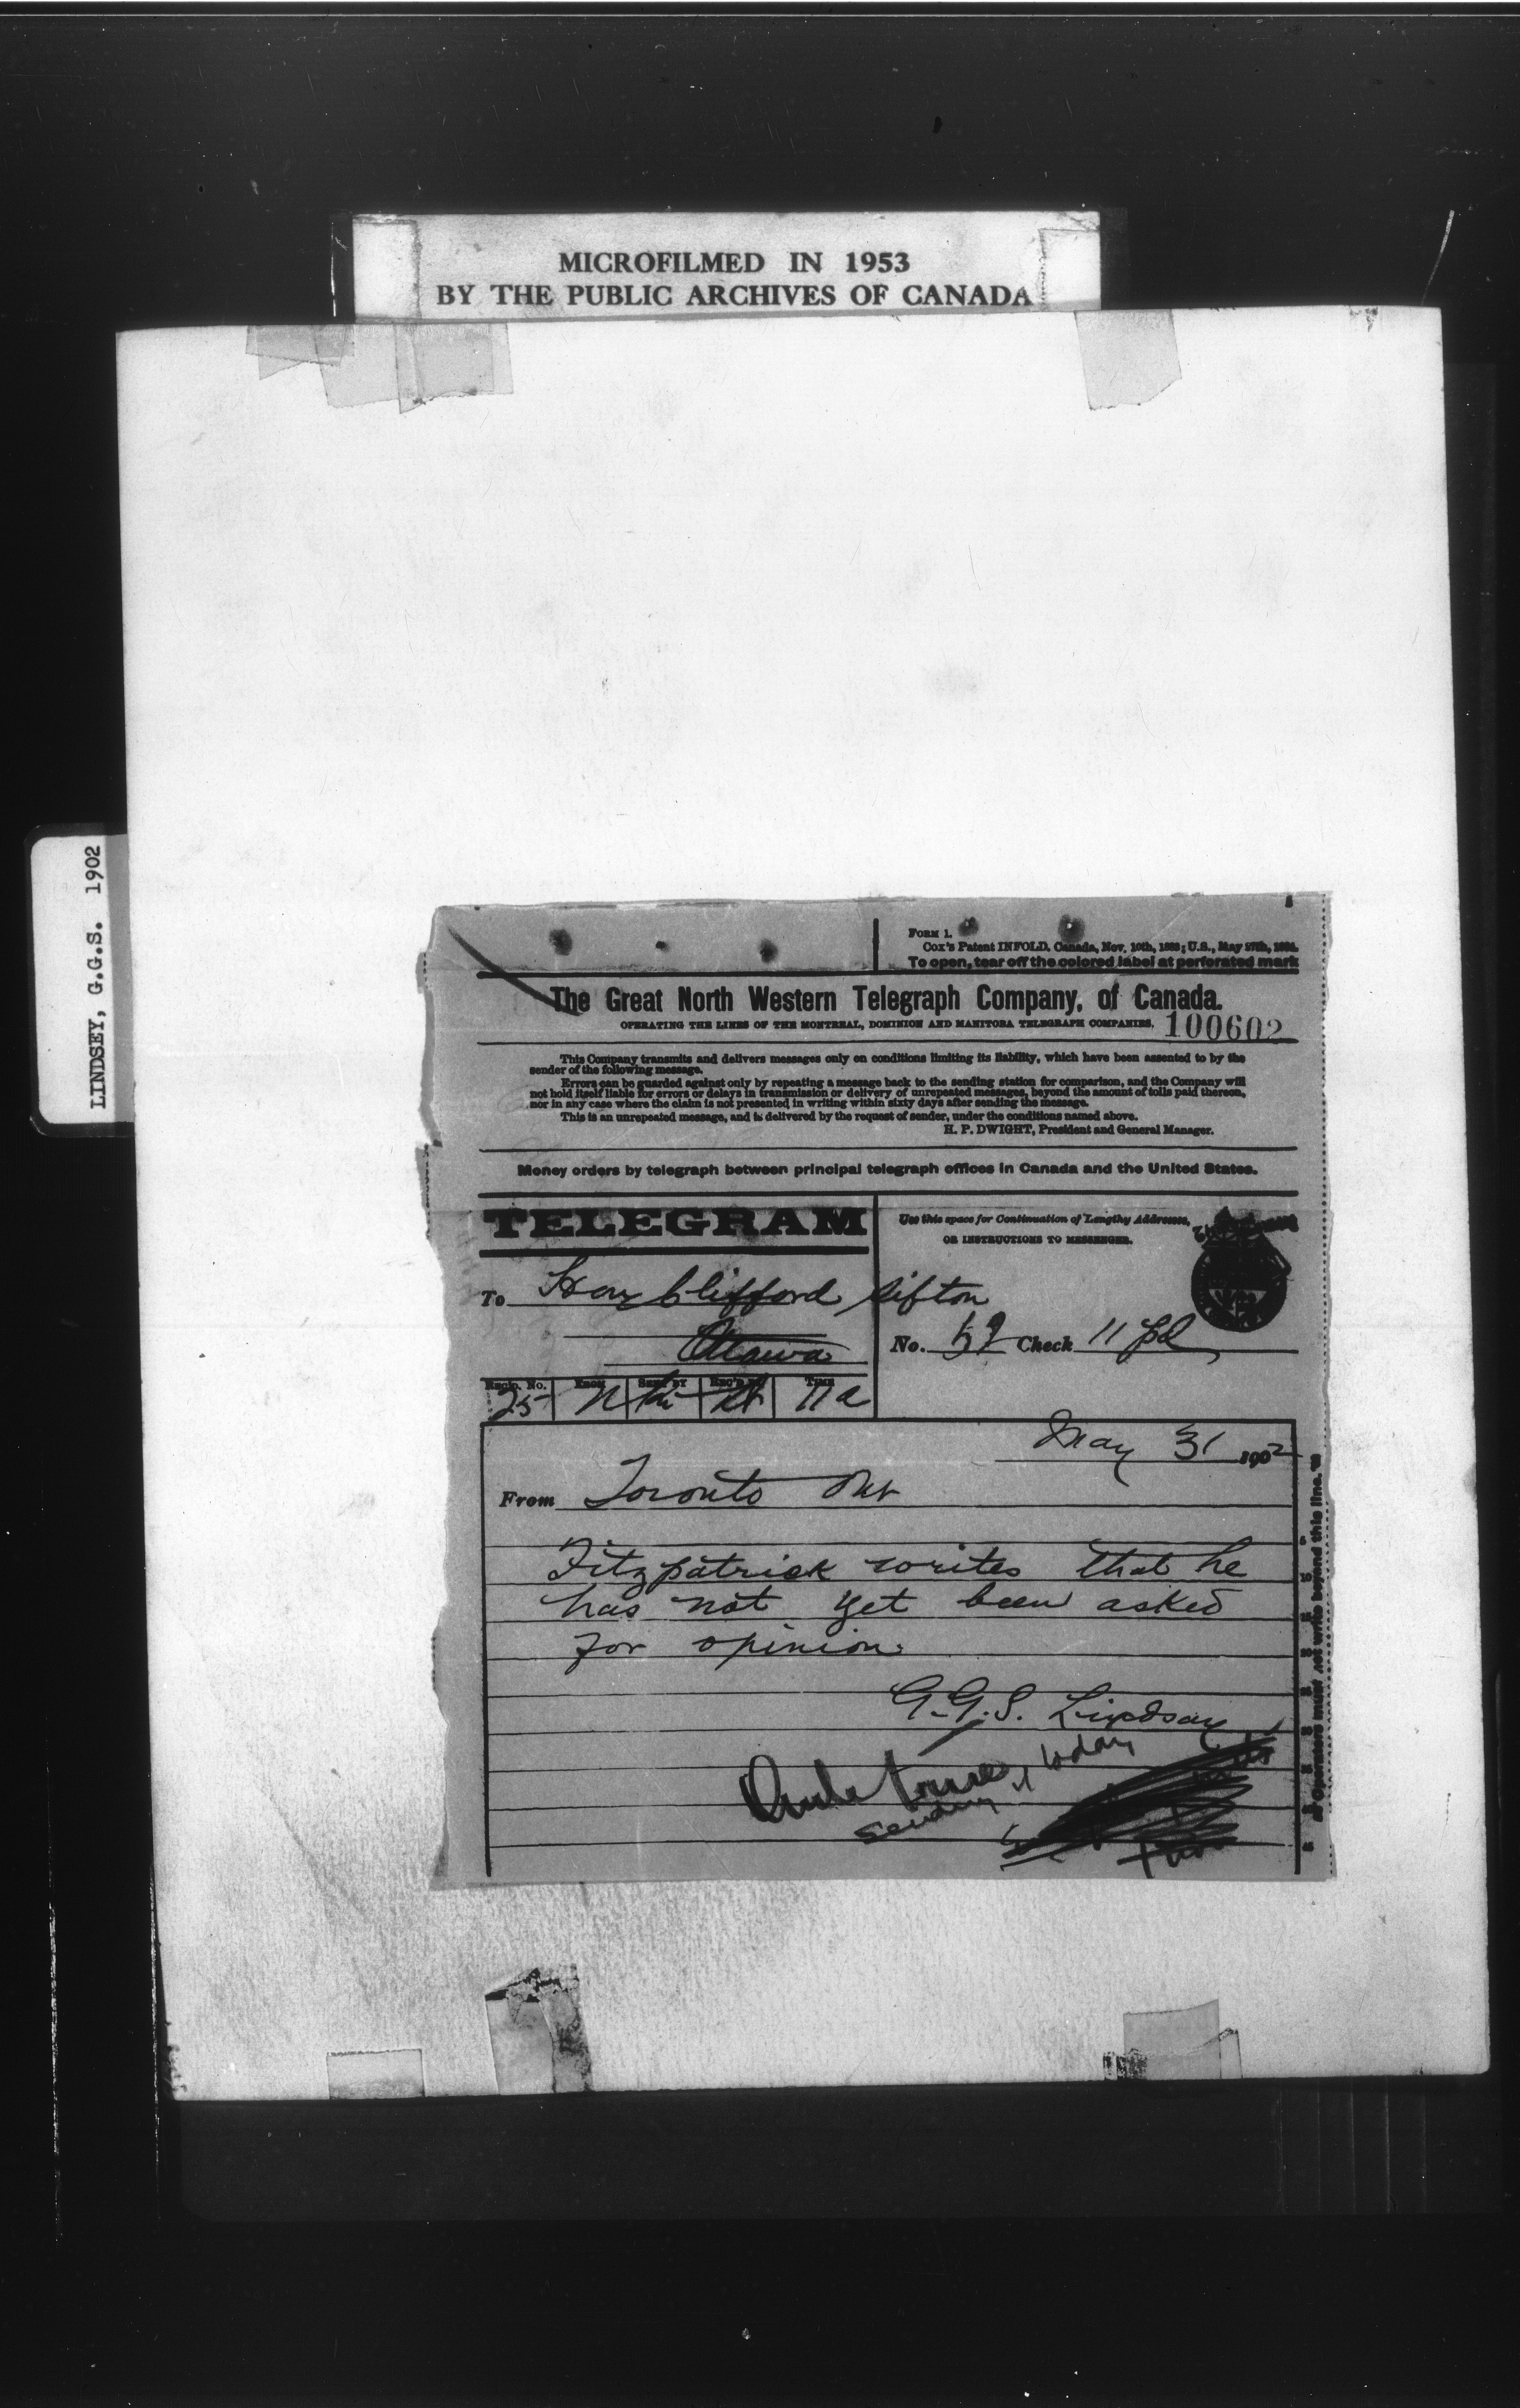 MICROFILMED IN 1953
BY THE PUBLIC ARCHIVES OF CANADA
LINDSEY, G.G.S. 1902
FORM 1.
Cox's Patent INFOLD. Canada, Nov. 10th, 1883; U.S., May 27th, 1884.
To open, tear off the colored label at perforated mark
The Great North Western Telegraph Company, of Canada.
OPERATING THE LINES OF THE MONTREAL, DOMINION AND MANITOBA TELEGRAPH COMPANIES.
100602
This Company transmits and delivers messages only on conditions limiting its liability, which have been assented to by the
sender of the following message.
Errors can be guarded against only by repeating a message back to the sending station for comparison, and the Company will
not hold itself liable for errors or delays in transmission or delivery of unrepeated messages, beyond the amount of tolls paid thereon,
nor in any case where the claim is not presented in writing within sixty days after sending the message.
This is an unrepeated message, and is delivered by the request of sender, under the conditions named above.
H. P. DWIGHT, President and General Manager.
Money orders by telegraph between principal telegraph offices in Canada and the United States.
TELEGRAM
Use this space for Continuation of Lengthy Addresses,
OR INSTRUCTIONS TO MESSENGER.
To Hon Clifford Sifton
Ottawa
No. 52 Check 11 pd
SENT BY REC'D BY TIME
25 11 a
May 31 1902
From Toronto Ont
Fitzpatrick writes that he
has not yet been asked
for opinion
G.G.S. Lindsay
today
sending
Operators must not write beyond this line.